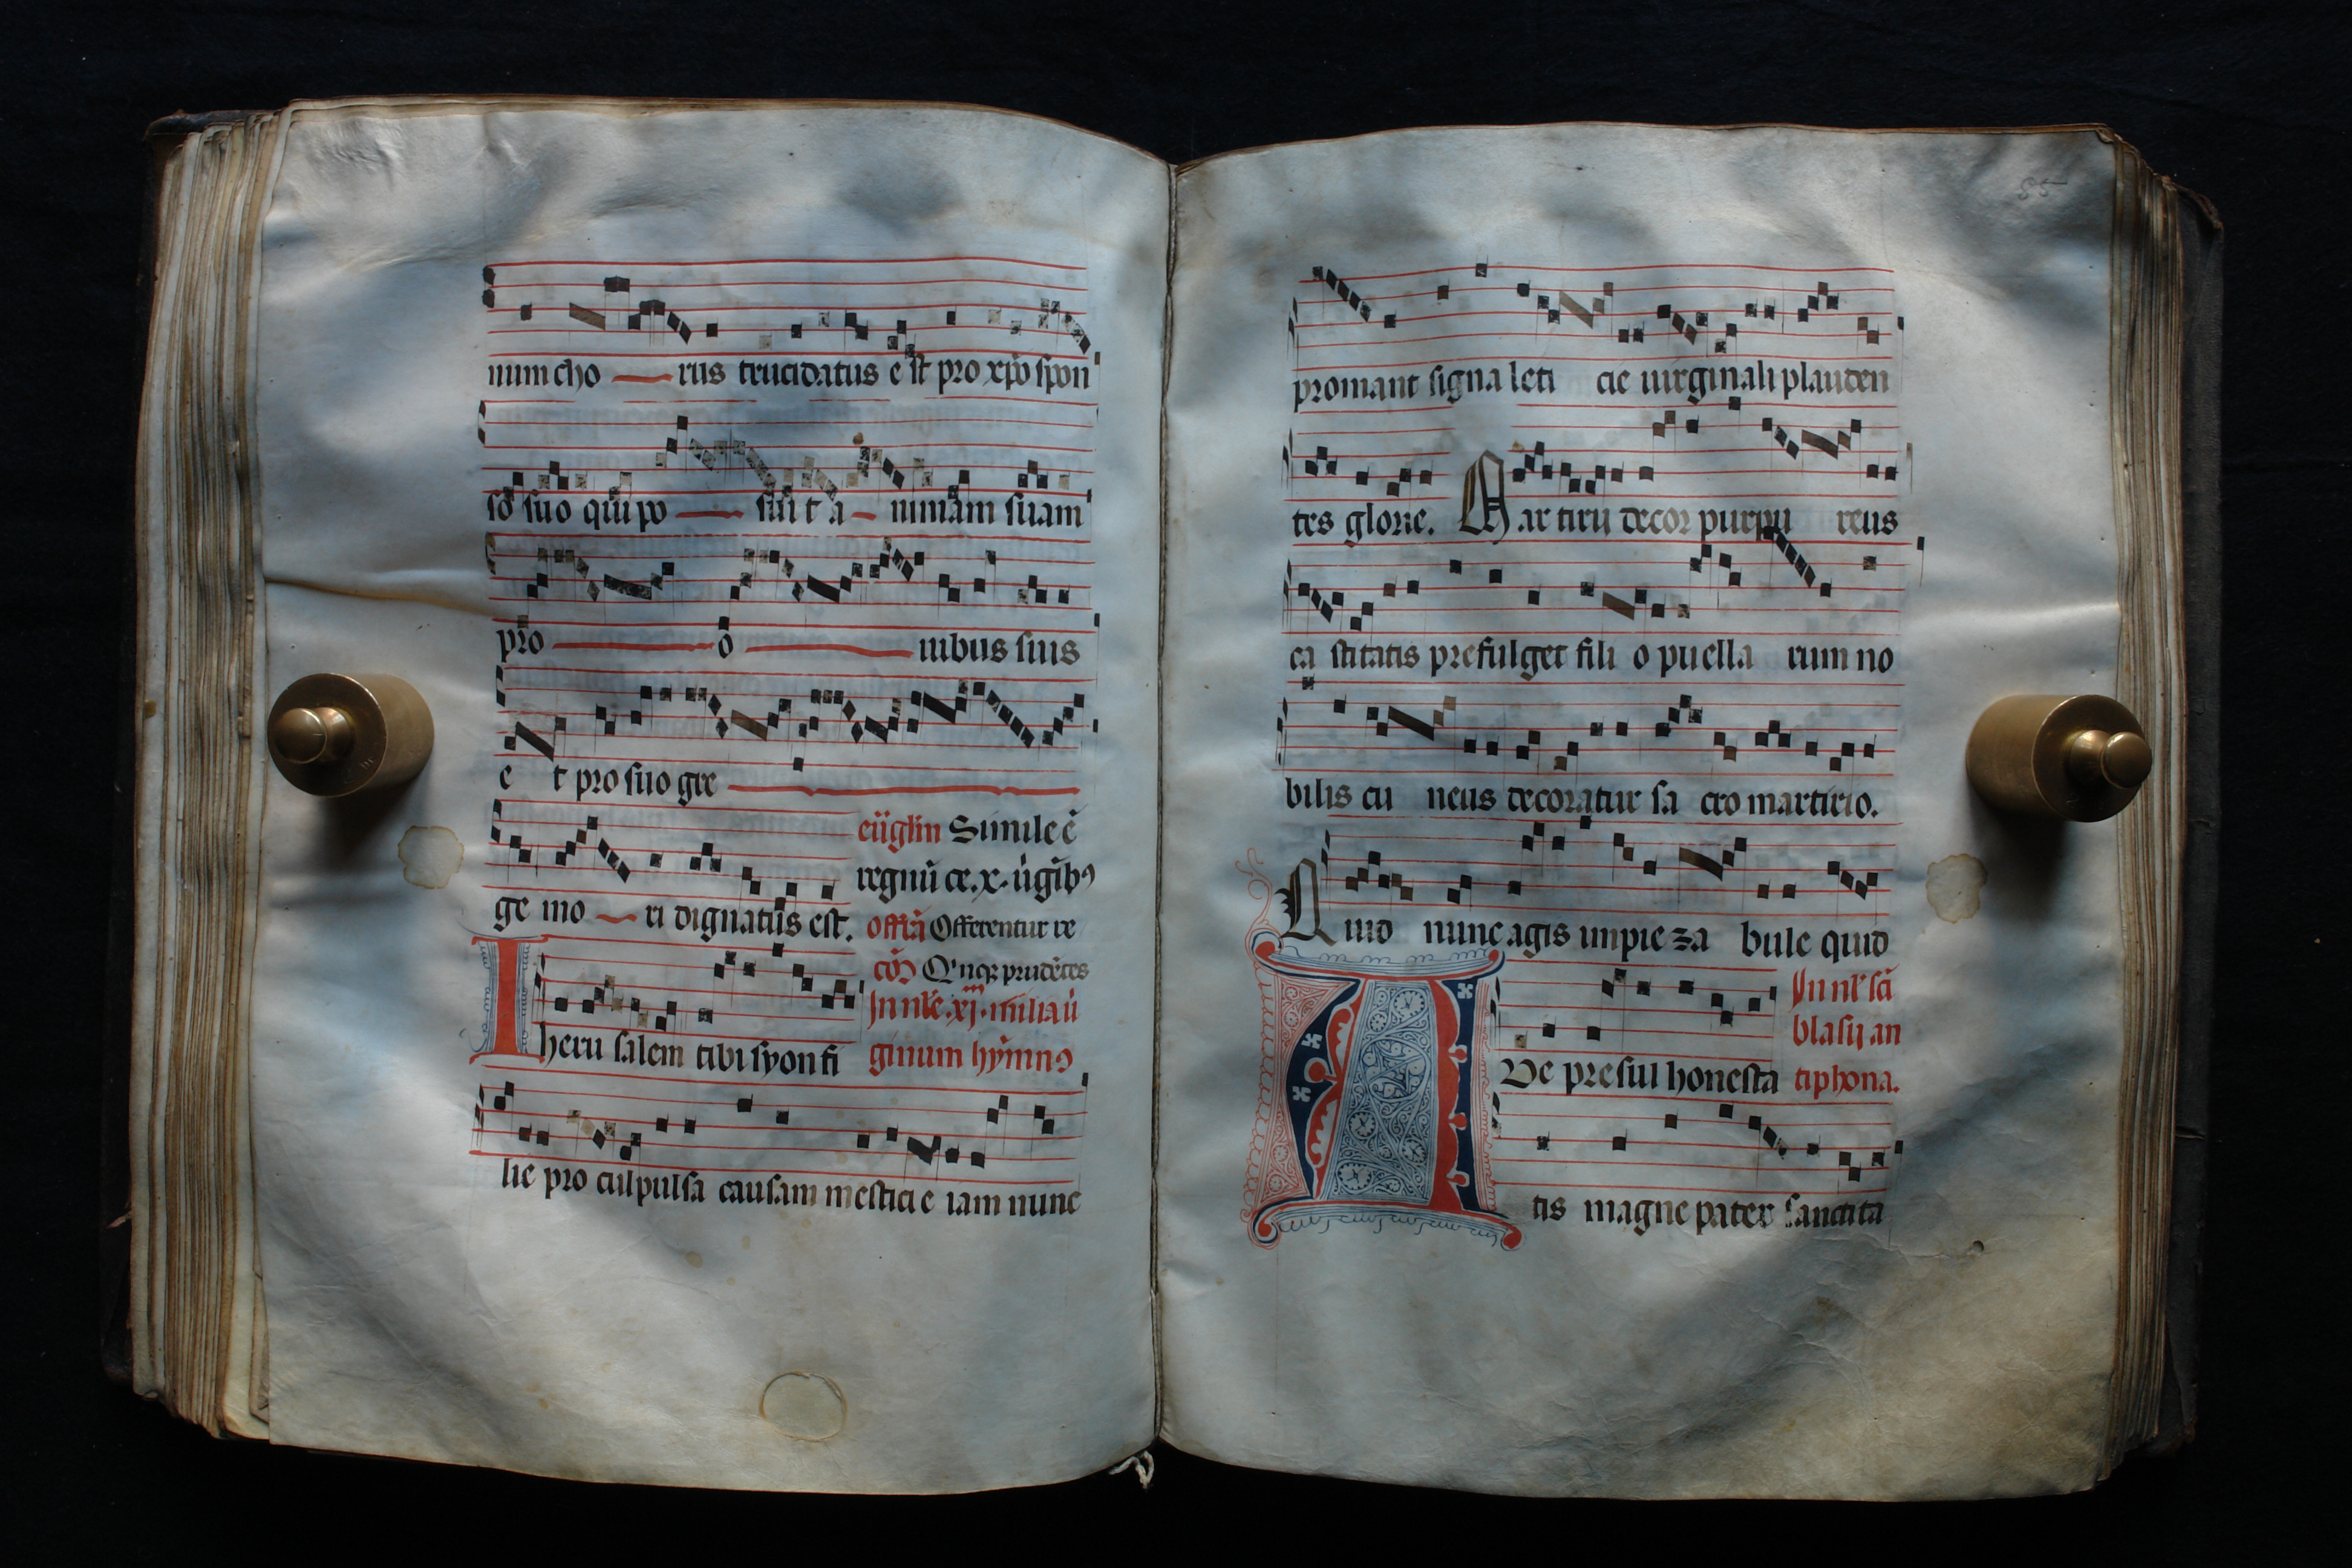 num cho rus trucidatus e st pro xpo spon
so suo qui po sui t a nimam suam
pro o uibus suis
e t pro suo gre
euglm Simile e
regnu ce. x. uigib9
ge mo ri dignatus est. offra Offerentur re
co Q'nqz prudetes
In nle. xj. m milia ui
heru salem tibi syon fi ginum hymn9
lie pro culpulsa causam mesticie iam nunc
85
promant signa leti cie uirginali plauden
tes glorie. Mar tirii decor purpu reus
ca stitatis prefulget fili o puella rum no
bilis cu neus decoratur sa cro martirio.
Quid nunc agis impie za bule quid
In nl' sci
blasij an
AVe presul honesta tiphona.
tis magne pater sanctita